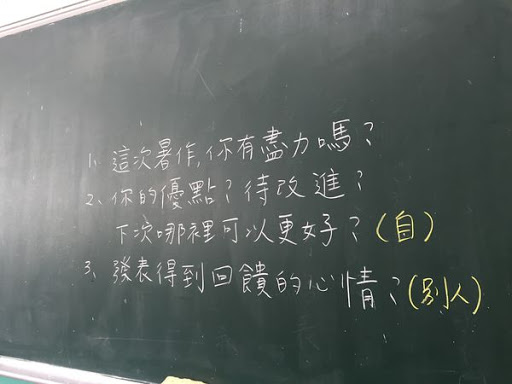 1、這次暑作,你有盡力嗎?
2、你的優點?待改進?
下次哪裡可以更好?(自)
3、發表得到回饋的心情?(別人)